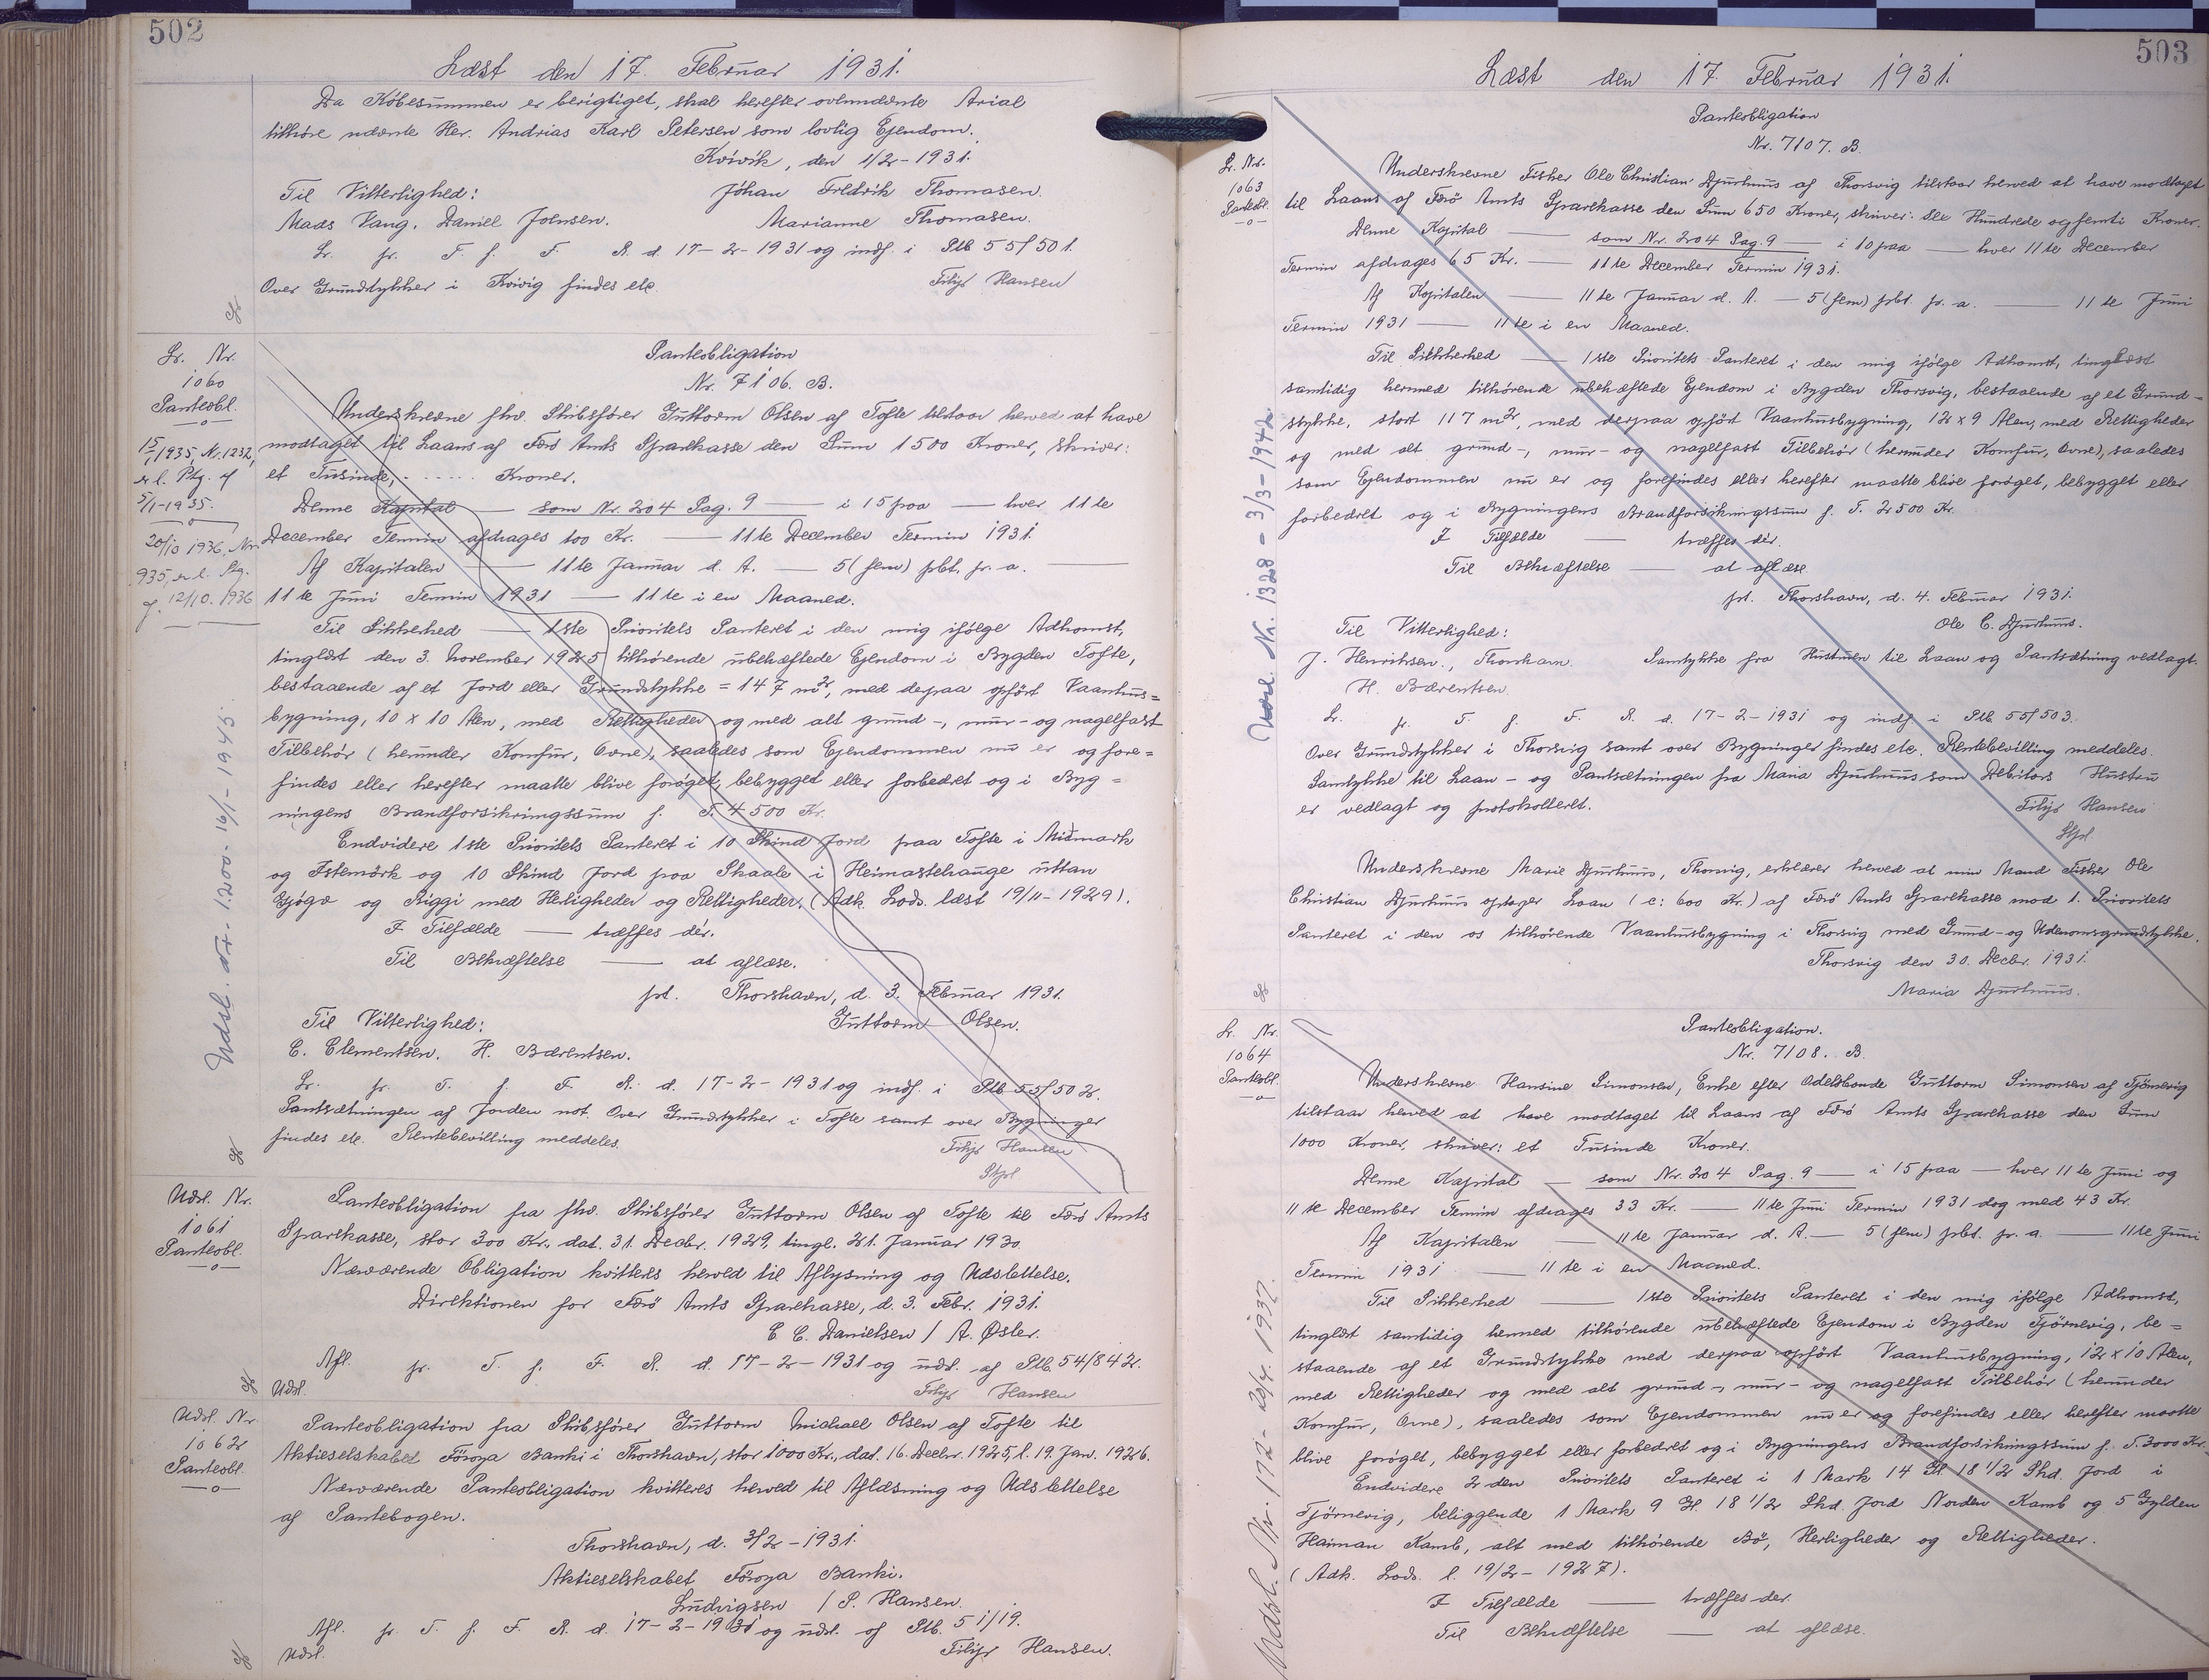 502
Læst den 17. Februar 1931.
Da Köbesummen er berigtiget, skal herefter ovennævnte Areal
tilhöre nævnte Hr. Andrias Karl Petersen som lovlig Ejendom.
Kvívík, den 1/2-1931.
Til Vitterlighed: Jóhan Fredrik Thomasen.
Mads Vang. Daniel Johnsen. Marianne Thomasen.
Lr. fr. T. f. F. R. d. 17-2-1931 og indf. i Ptb 55/501.
Over Grundstykker i Kvivig findes etc. Filip Hansen
Lr. Nr.
1060
Panteobl.
15/1 1935, Nr. 1232,
er l. Ptg. af
5/1-1935.
20/10 1936, Nr.
935, er l. Ptg.
af 12/10. 1936
Udsl. Nr. 1200 - 16/1-1945.
Panteobligation
Nr. 7106. B.
Underskrevne fhv. Skibsfører Guttorm Olsen af Tofte tilstaar herved at have
modtaget til Laans af Færø Amts Sparekasse den Sum 1500 Kroner, skriver:
et Tusinde, - ..... Kroner.
Denne Kapital — som Nr. 204 Pag. 9 — i 15 paa — hver 11te
December Termin afdrages 100 Kr. — 11te December Termin 1931.
Af Kapitalen — 11te Januar d. A. — 5 (fem) pct. pr. a. —
11te Juni Termin 1931 — 11te i en Maaned.
Til Sikkerhed — 1ste Prioritets Panteret i den mig ifølge Adkomst,
tinglæst den 3. November 1925 tilhørende ubehæftede Ejendom i Bygden Tofte,
bestaaende af et Jord eller Grundstykke = 147 m², med derpaa opført Vaanhus=
bygning, 10 x 10 Alen, med Rettigheder og med alt grund-, mur- og nagelfast
Tilbehör (herunder Komfur, Ovne), saaledes som Ejendommen nu er og fore=
findes eller herefter maatte blive forøget, bebygget eller forbedret og i Byg=
ningens Brandforsikringssum f. T. 4500 Kr.
Endvidere 1ste Prioritets Panteret i 10 Skind Jord paa Tofte i Miðmark
og Istemörk og 10 Skind Jord paa Skaale i Heimastehauge uttan
Gjógv og Riggi med Herligheder og Rettigheder. (Adk. Lods. læst 19/11-1929).
I Tilfælde — træffes dér.
Til Bekræftelse — at aflæse.
pt. Thorshavn, d. 3. Februar 1931.
Til Vitterlighed: Guttorm Olsen.
C. Clementsen. H. Bærentsen.
Lr. fr. T. f. F. R. d. 17-2-1931 og indf. i Ptb 55/502.
Pantsætningen af Jorden not. Over Grundstykker i Tofte samt over Bygninger
findes etc. Rentebevilling meddeles. Filip Hansen
Stpl
Udsl. Nr.
1061
Panteobl.
Panteobligation fra fhv. Skibsfører Guttorm Olsen af Tofte til Færö Amts
Sparekasse, stor 300 Kr., dat. 31. Decbr. 1929, tingl. 21. Januar 1930.
Nærværende Obligation kvitteres herved til Aflysning og Udslettelse.
Direktionen for Færö Amts Sparekasse, d. 3. Febr. 1931.
C. C. Danielsen / A. Øster.
Afl. fr. T. f. F. R. d. 17-2-1931 og udsl. af Ptb. 54/842.
Udsl. Filip Hansen
Udsl. Nr
1062
Panteobl.
Panteobligation fra Skibsfører Guttorm Michael Olsen af Tofte til
Aktieselskabet Föroya Banki i Thorshavn, stor 1000 Kr., dat. 16. Decbr. 1925, l. 19. Jan. 1926.
Nærværende Panteobligation kvitteres herved til Aflæsning og Udslettelse
af Pantebogen.
Thorshavn, d. 3/2-1931.
Aktieselskabet Föroya Banki.
Ludvigsen / P. Hansen.
Afl. fr. T. f. F. R. d. 17-2-1931 og udsl. af Ptb. 51/19.
Udsl. Filip Hansen.
503
Læst den 17. Februar 1931.
Lr. Nr.
1063
Panteobl.
Udsl. Nr. 1328 - 3/3-1942
Panteobligation
Nr. 7107. B.
Underskrevne Fisker Ole Christian Djurhuus af Thorsvig tilstaar herved at have modtaget
til Laans af Færö Amts Sparekasse den Sum 650 Kroner, skriver: Sex Hundrede og femti Kroner.
Denne Kapital — som Nr. 204 Pag. 9 — i 10 paa — hver 11te December
Termin afdrages 65 Kr. — 11te December Termin 1931.
Af Kapitalen — 11te Januar d. A. — 5 (fem) pct. pr. a. — 11te Juni
Termin 1931 — 11te i en Maaned.
Til Sikkerhed — 1ste Prioritets Panteret i den mig ifölge Adkomst, tinglæst
samtidig hermed tilhörende ubehæftede Ejendom i Bygden Thorsvig, bestaaende af et Grund-
stykke, stort 117 m², med derpaa opfört Vaanhusbygning, 12 x 9 Alen, med Rettigheder
og med alt grund-, mur- og nagelfast Tilbehör (herunder Komfur, Ovne), saaledes
som Ejendommen nu er og forefindes eller herefter maatte blive foröget, bebygget eller
forbedret og i Bygningens Brandforsikringssum f. T. 2500 Kr.
I Tilfælde — træffes dér.
Til Bekræftelse — at aflæse.
pt. Thorshavn, d. 4. Februar 1931.
Til Vitterlighed: Ole C. Djurhuus.
J. Henriksen., Thorshavn. Samtykke fra Hustruen til Laan og Pantsætning vedlagt.
H. Bærentsen.
Lr. fr. T. f. F. R. d. 17-2-1931 og indf i Ptb 55/503.
Over Grundstykker i Thorsvig samt over Bygninger findes etc. Rentebevilling meddeles.
Samtykke til Laan- og Pantsætningen fra Maria Djurhuus som Debitors Hustru
er vedlagt og protokolleret. Filip Hansen
Stpl.
Underskrevne Marie Djurhuus, Thorsvig, erklærer herved at min Mand Fisker Ole
Christian Djurhuus optager Laan (c: 600 Kr.) af Færö Amts Sparekasse mod 1. Prioritets
Panteret i den os tilhörende Vaanhusbygning i Thorsvig med Grund- og Udenomsgrundstykke.
Thorsvig den 30. Decbr. 1931.
Maria Djurhuus.
Lr. Nr.
1064
Panteobl.
Udsl. Nr. 172 - 20/4. 1937.
Panteobligation.
Nr. 7108. B.
Underskrevne Hansine Simonsen, Enke efter Odelsbonde Guttorm Simonsen af Tjörnevig
tilstaar herved at have modtaget til Laans af Færö Amts Sparekasse den Sum
1000 Kroner, skriver: et Tusinde Kroner.
Denne Kapital — som Nr. 204 Pag. 9 — i 15 paa — hver 11te Juni og
11te December Termin afdrages 33 Kr. — 11te Juni Termin 1931 dog med 43 Kr.
Af Kapitalen — 11te Januar d. A. — 5 (fem) pct. pr. a. — 11te Juni
Termin 1931 — 11te i en Maaned.
Til Sikkerhed — 1ste Prioritets Panteret i den mig ifölge Adkomst,
tinglæst samtidig hermed tilhörende ubehæftede Ejendom i Bygden Tjörnevig, be=
staaende af et Grundstykke med derpaa opfört Vaanhusbygning, 12 x 10 Alen,
med Rettigheder og med alt grund-, mur- og nagelfast Tilbehör (herunder
Komfur, Ovne), saaledes som Ejendommen nu er og forefindes eller herefter maatte
blive foröget, bebygget eller forbedret og i Bygningens Brandforsikringssum f. T. 3000 Kr.
Endvidere 2den Prioritets Panteret i 1 Mark 14 Gl 18 1/2 Skd. Jord i
Tjörnevig, beliggende 1 Mark 9 Gl. 18 1/2 Skd. Jord Norden Kamb og 5 Gylden
Haiman Kamb, alt med tilhörende Bö, Herligheder og Rettigheder.
(Adk. Lods. l. 19/2-1927).
I Tilfælde — træffes der.
Til Bekræftelse — at aflæse.